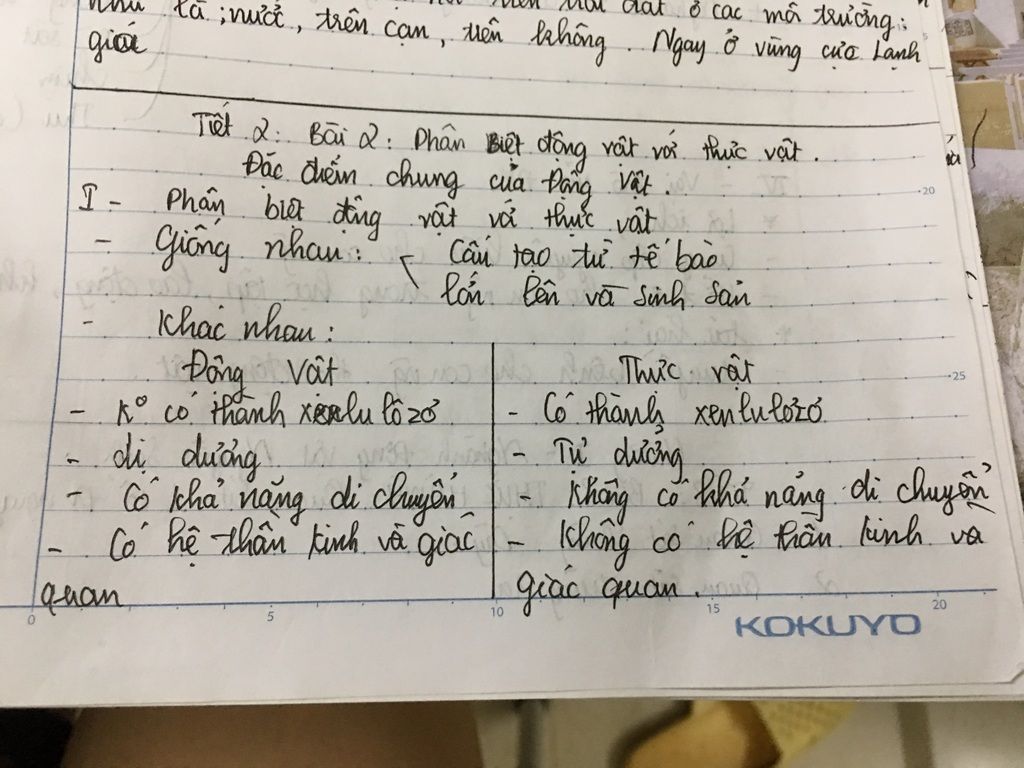 như là : nước, trên cạn, trên không. Ngay ở vùng cực lạnh
giá
Tiết 2: Bài 2: Phân Biệt động vật với thực vật.
Đặc điểm chung của Động Vật.
20
I - Phân biệt động vật với thực vật
- Giống nhau: Cấu tạo từ tế bào
lớn lên và sinh sản
- Khác nhau:
Động Vật
Thực vật
25
- K° có thành xenlulôzơ
- Có thành xenlulozơ
- dị dưỡng
- Tự dưỡng
- Có khả năng di chuyển
- Không có khả năng di chuyển
- Có hệ thần kinh và giác
quan
- Không có hệ thần kinh và
giác quan.
0 5 10 15 20
KOKUYO